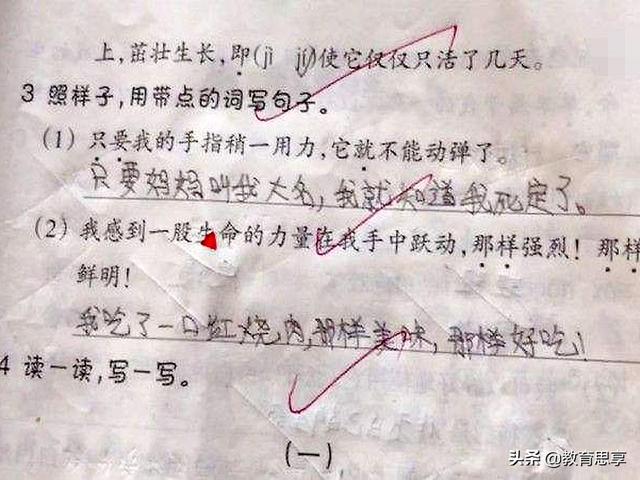 上,茁壮生长,即(jì jí)使它仅仅只活了几天。
3 照样子,用带点的词写句子。
(1) 只要我的手指稍一用力,它就不能动弹了。
只要妈妈叫我大名,我就知道我死定了。
(2) 我感到一股生命的力量在我手中跃动,那样强烈!那样
鲜明!
我吃了一口红烧肉,那样美味,那样好吃!
4 读一读,写一写。
(一)
头条 @教育思享